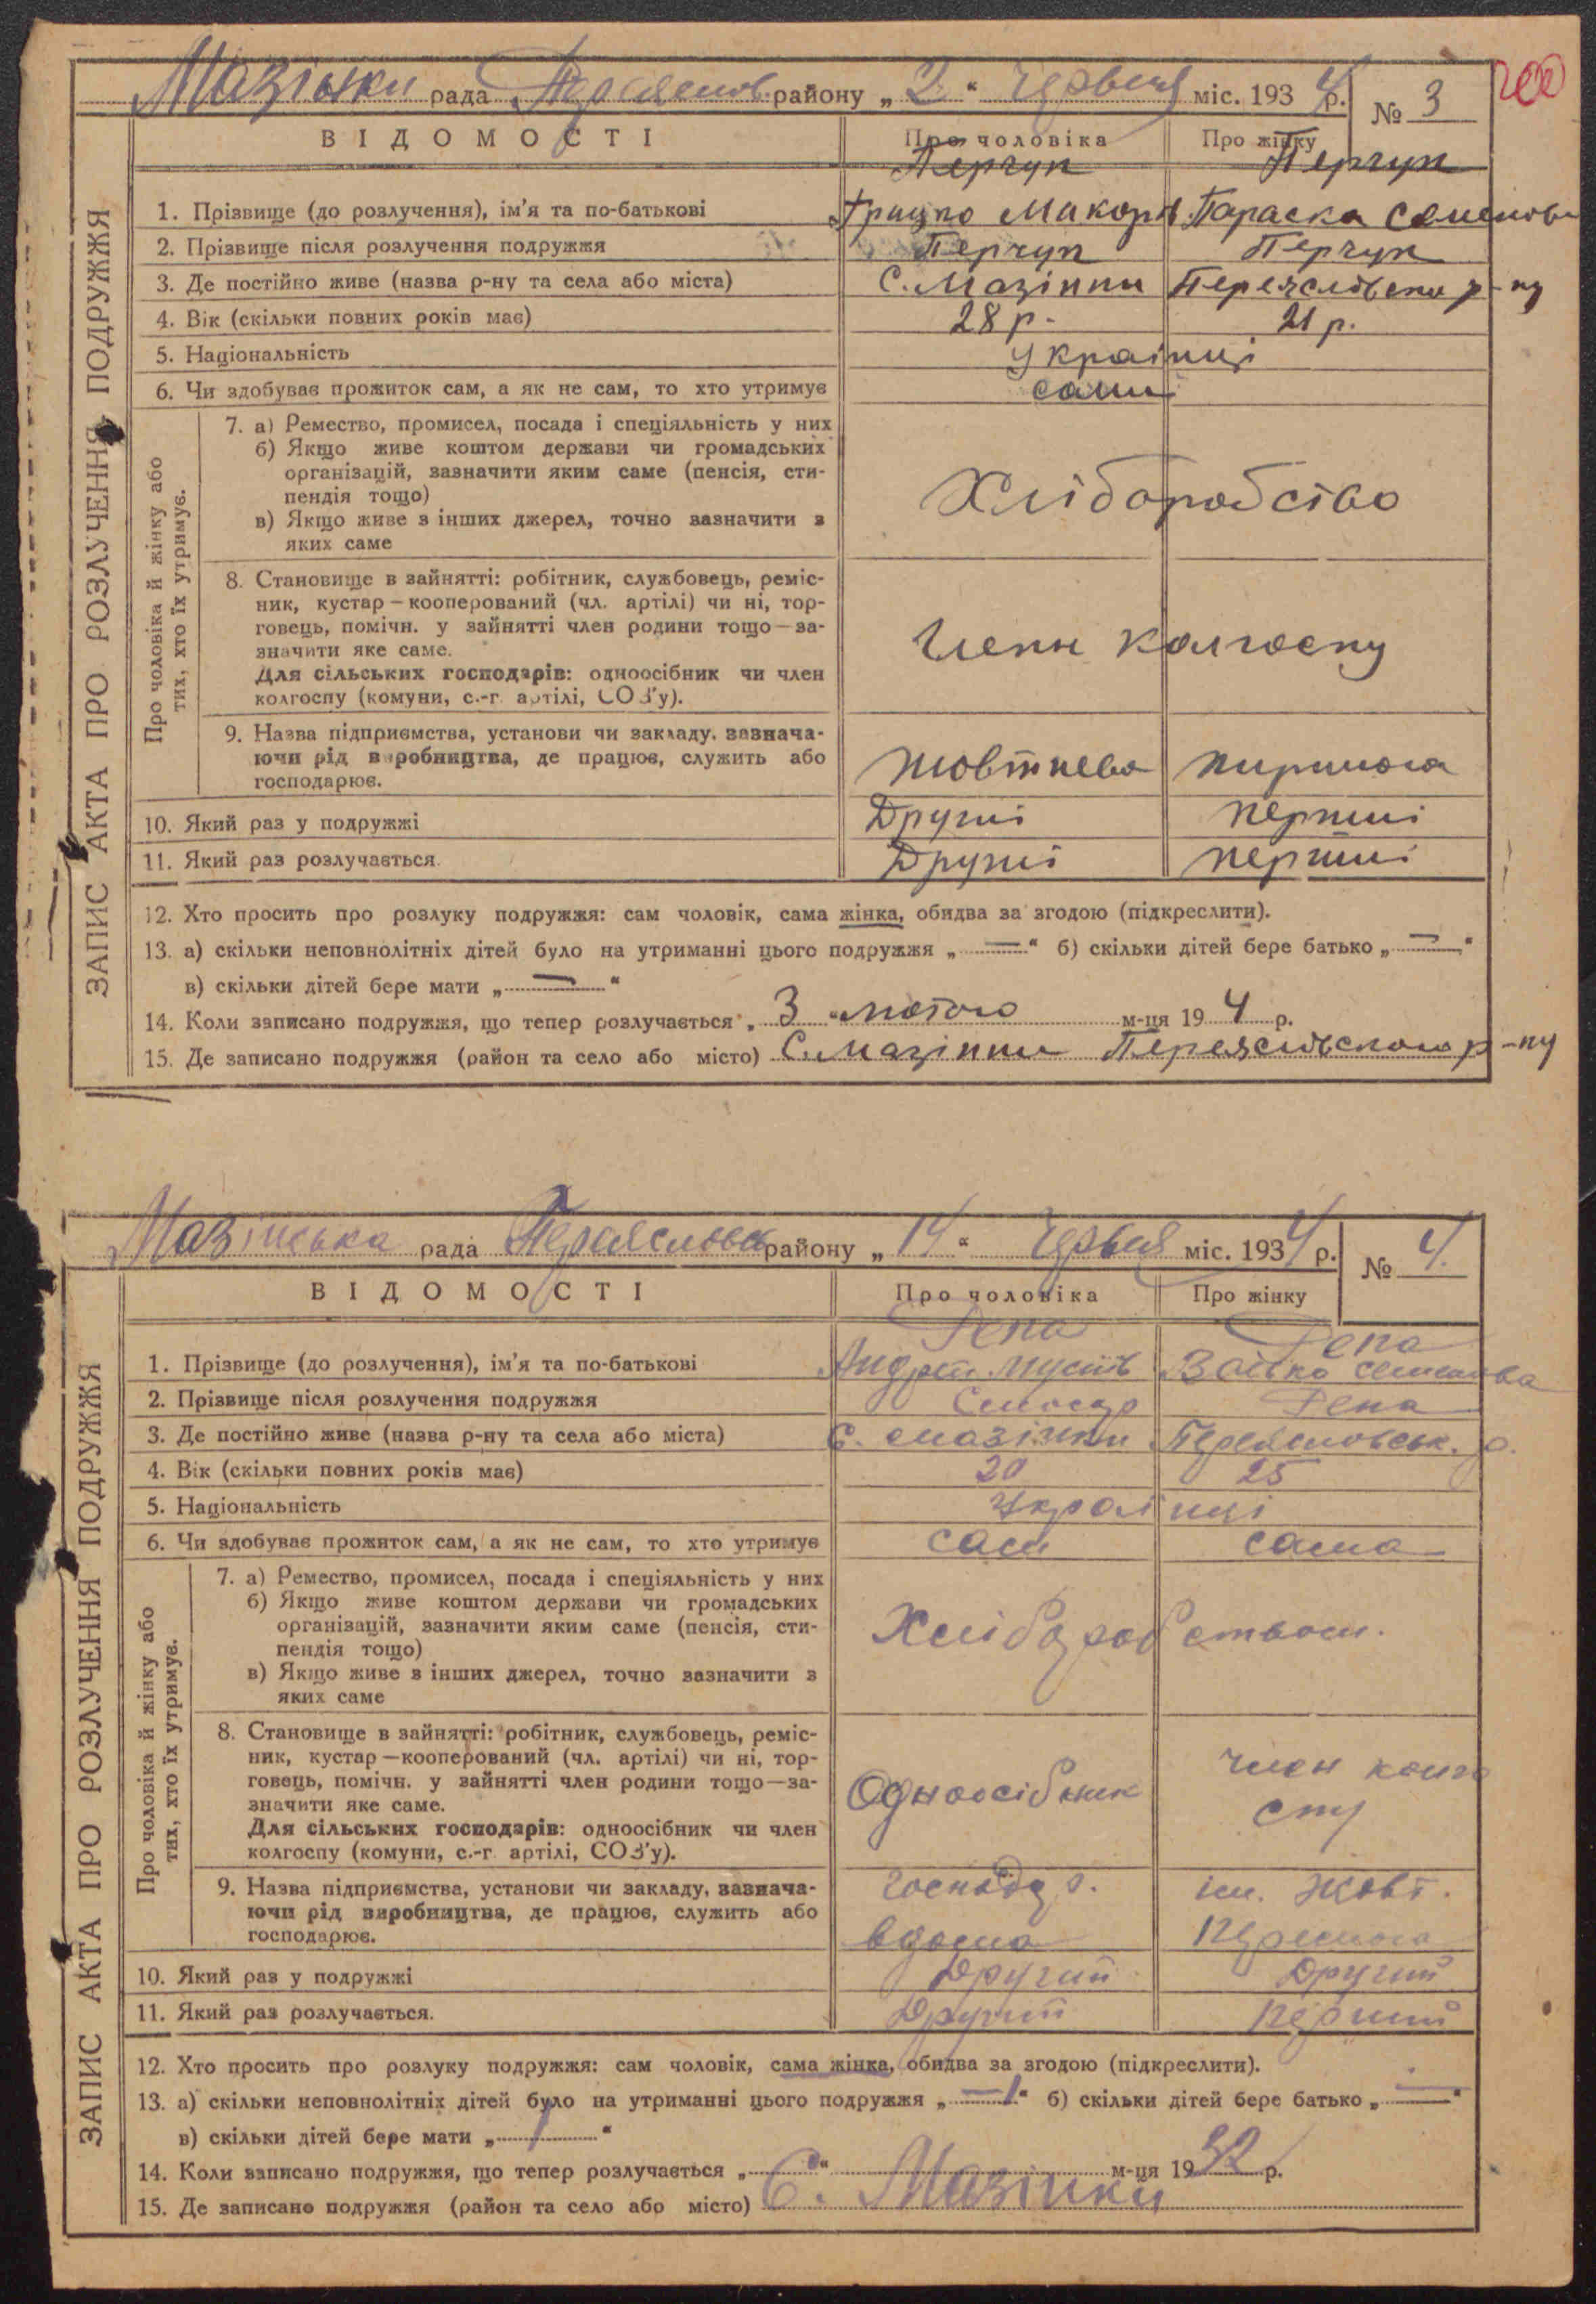 Мазінки рада Переяслов. району „ 2 “ Червня міс. 193 4 р. № 3
200
ВІДОМОСТІ Про чоловіка Про жінку
Перчук Перчук
1. Прізвище (до розлучення), ім’я та по-батькові Грицко Макор. Параска Семенов.
2. Прізвище після розлучення подружжя Перчук Перчук
3. Де постійно живе (назва р-ну та села або міста) С. Мазінки Переяслівськ р-ну
4. Вік (скільки повних років має) 28 р. 21 р.
5. Національність Українці
6. Чи здобуває прожиток сам, а як не сам, то хто утримує сами
ЗАПИС АКТА ПРО РОЗЛУЧЕННЯ ПОДРУЖЖЯ
Про чоловіка й жінку або
тих, хто їх утримує.
7. а) Ремество, промисел, посада і спеціяльність у них
б) Якщо живе коштом держави чи громадських
організацій, зазначити яким саме (пенсія, сти-
пендія тощо)
в) Якщо живе з інших джерел, точно зазначити з
яких саме
Хліборобство
8. Становище в зайнятті: робітник, службовець, реміс-
ник, кустар — кооперований (чл. артілі) чи ні, тор-
говець, помічн. у зайнятті член родини тощо — за-
значити яке саме.
Для сільських господарів: одноосібник чи член
колгоспу (комуни, с.-г. артілі, СОЗ’у).
Члени колгоспу
9. Назва підприємства, установи чи закладу, зазнача-
ючи рід виробництва, де працює, служить або
господарює.
Жовтнева
10. Який раз у подружжі Другий перший
11. Який раз розлучається. Другий перший
12. Хто просить про розлуку подружжя: сам чоловік, сама жінка, обидва за згодою (підкреслити).
13. а) скільки неповнолітніх дітей було на утриманні цього подружжя „ — “ б) скільки дітей бере батько „ — “
в) скільки дітей бере мати „ — “
14. Коли записано подружжя, що тепер розлучається „ 3 “ лютого м-ця 19 4 р.
15. Де записано подружжя (район та село або місто) С. Мазінки Переяслівського р-ну
Мазінська рада Переясловск району „ 14 “ Червня міс. 193 4 р. № 4.
ВІДОМОСТІ Про чоловіка Про жінку
Репа Репа
1. Прізвище (до розлучення), ім’я та по-батькові Андрій Семенова
2. Прізвище після розлучення подружжя Репа
3. Де постійно живе (назва р-ну та села або міста) С. Мазінки Переясловськ. р.
4. Вік (скільки повних років має) 20 25
5. Національність Українці
6. Чи здобуває прожиток сам, а як не сам, то хто утримує сам сама
ЗАПИС АКТА ПРО РОЗЛУЧЕННЯ ПОДРУЖЖЯ
Про чоловіка й жінку або
тих, хто їх утримує.
7. а) Ремество, промисел, посада і спеціяльність у них
б) Якщо живе коштом держави чи громадських
організацій, зазначити яким саме (пенсія, сти-
пендія тощо)
в) Якщо живе з інших джерел, точно зазначити з
яких саме
Хліборобством.
8. Становище в зайнятті: робітник, службовець, реміс-
ник, кустар — кооперований (чл. артілі) чи ні, тор-
говець, помічн. у зайнятті член родини тощо — за-
значити яке саме.
Для сільських господарів: одноосібник чи член
колгоспу (комуни, с.-г. артілі, СОЗ’у).
Одноосібник член колго
спу
9. Назва підприємства, установи чи закладу, зазнача-
ючи рід виробництва, де працює, служить або
господарює.
господар. ім. Жовт.
вдома
10. Який раз у подружжі Другий Другий
11. Який раз розлучається. Другий Перший
12. Хто просить про розлуку подружжя: сам чоловік, сама жінка, обидва за згодою (підкреслити).
13. а) скільки неповнолітніх дітей було на утриманні цього подружжя „ — 1 “ б) скільки дітей бере батько „ — “
в) скільки дітей бере мати „ 1 “
14. Коли записано подружжя, що тепер розлучається „ “ м-ця 19 32 р.
15. Де записано подружжя (район та село або місто) С. Мазінки